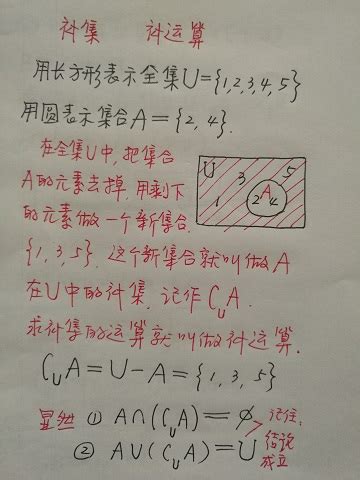 补集 补运算
用长方形表示全集U={1,2,3,4,5}
用圆表示集合A={2,4}.
在全集U中,把集合
A的元素去掉,用剩下
的元素做一个新集合.
{1,3,5}.这个新集合就叫做A
在U中的补集,记作∁UA.
求补集的运算就叫做补运算.
U 3 5
1 A
2 4
∁UA=U-A={1,3,5}
显然 ① A∩(∁UA)=∅ 记住,
② A∪(∁UA)=U 结论
成立